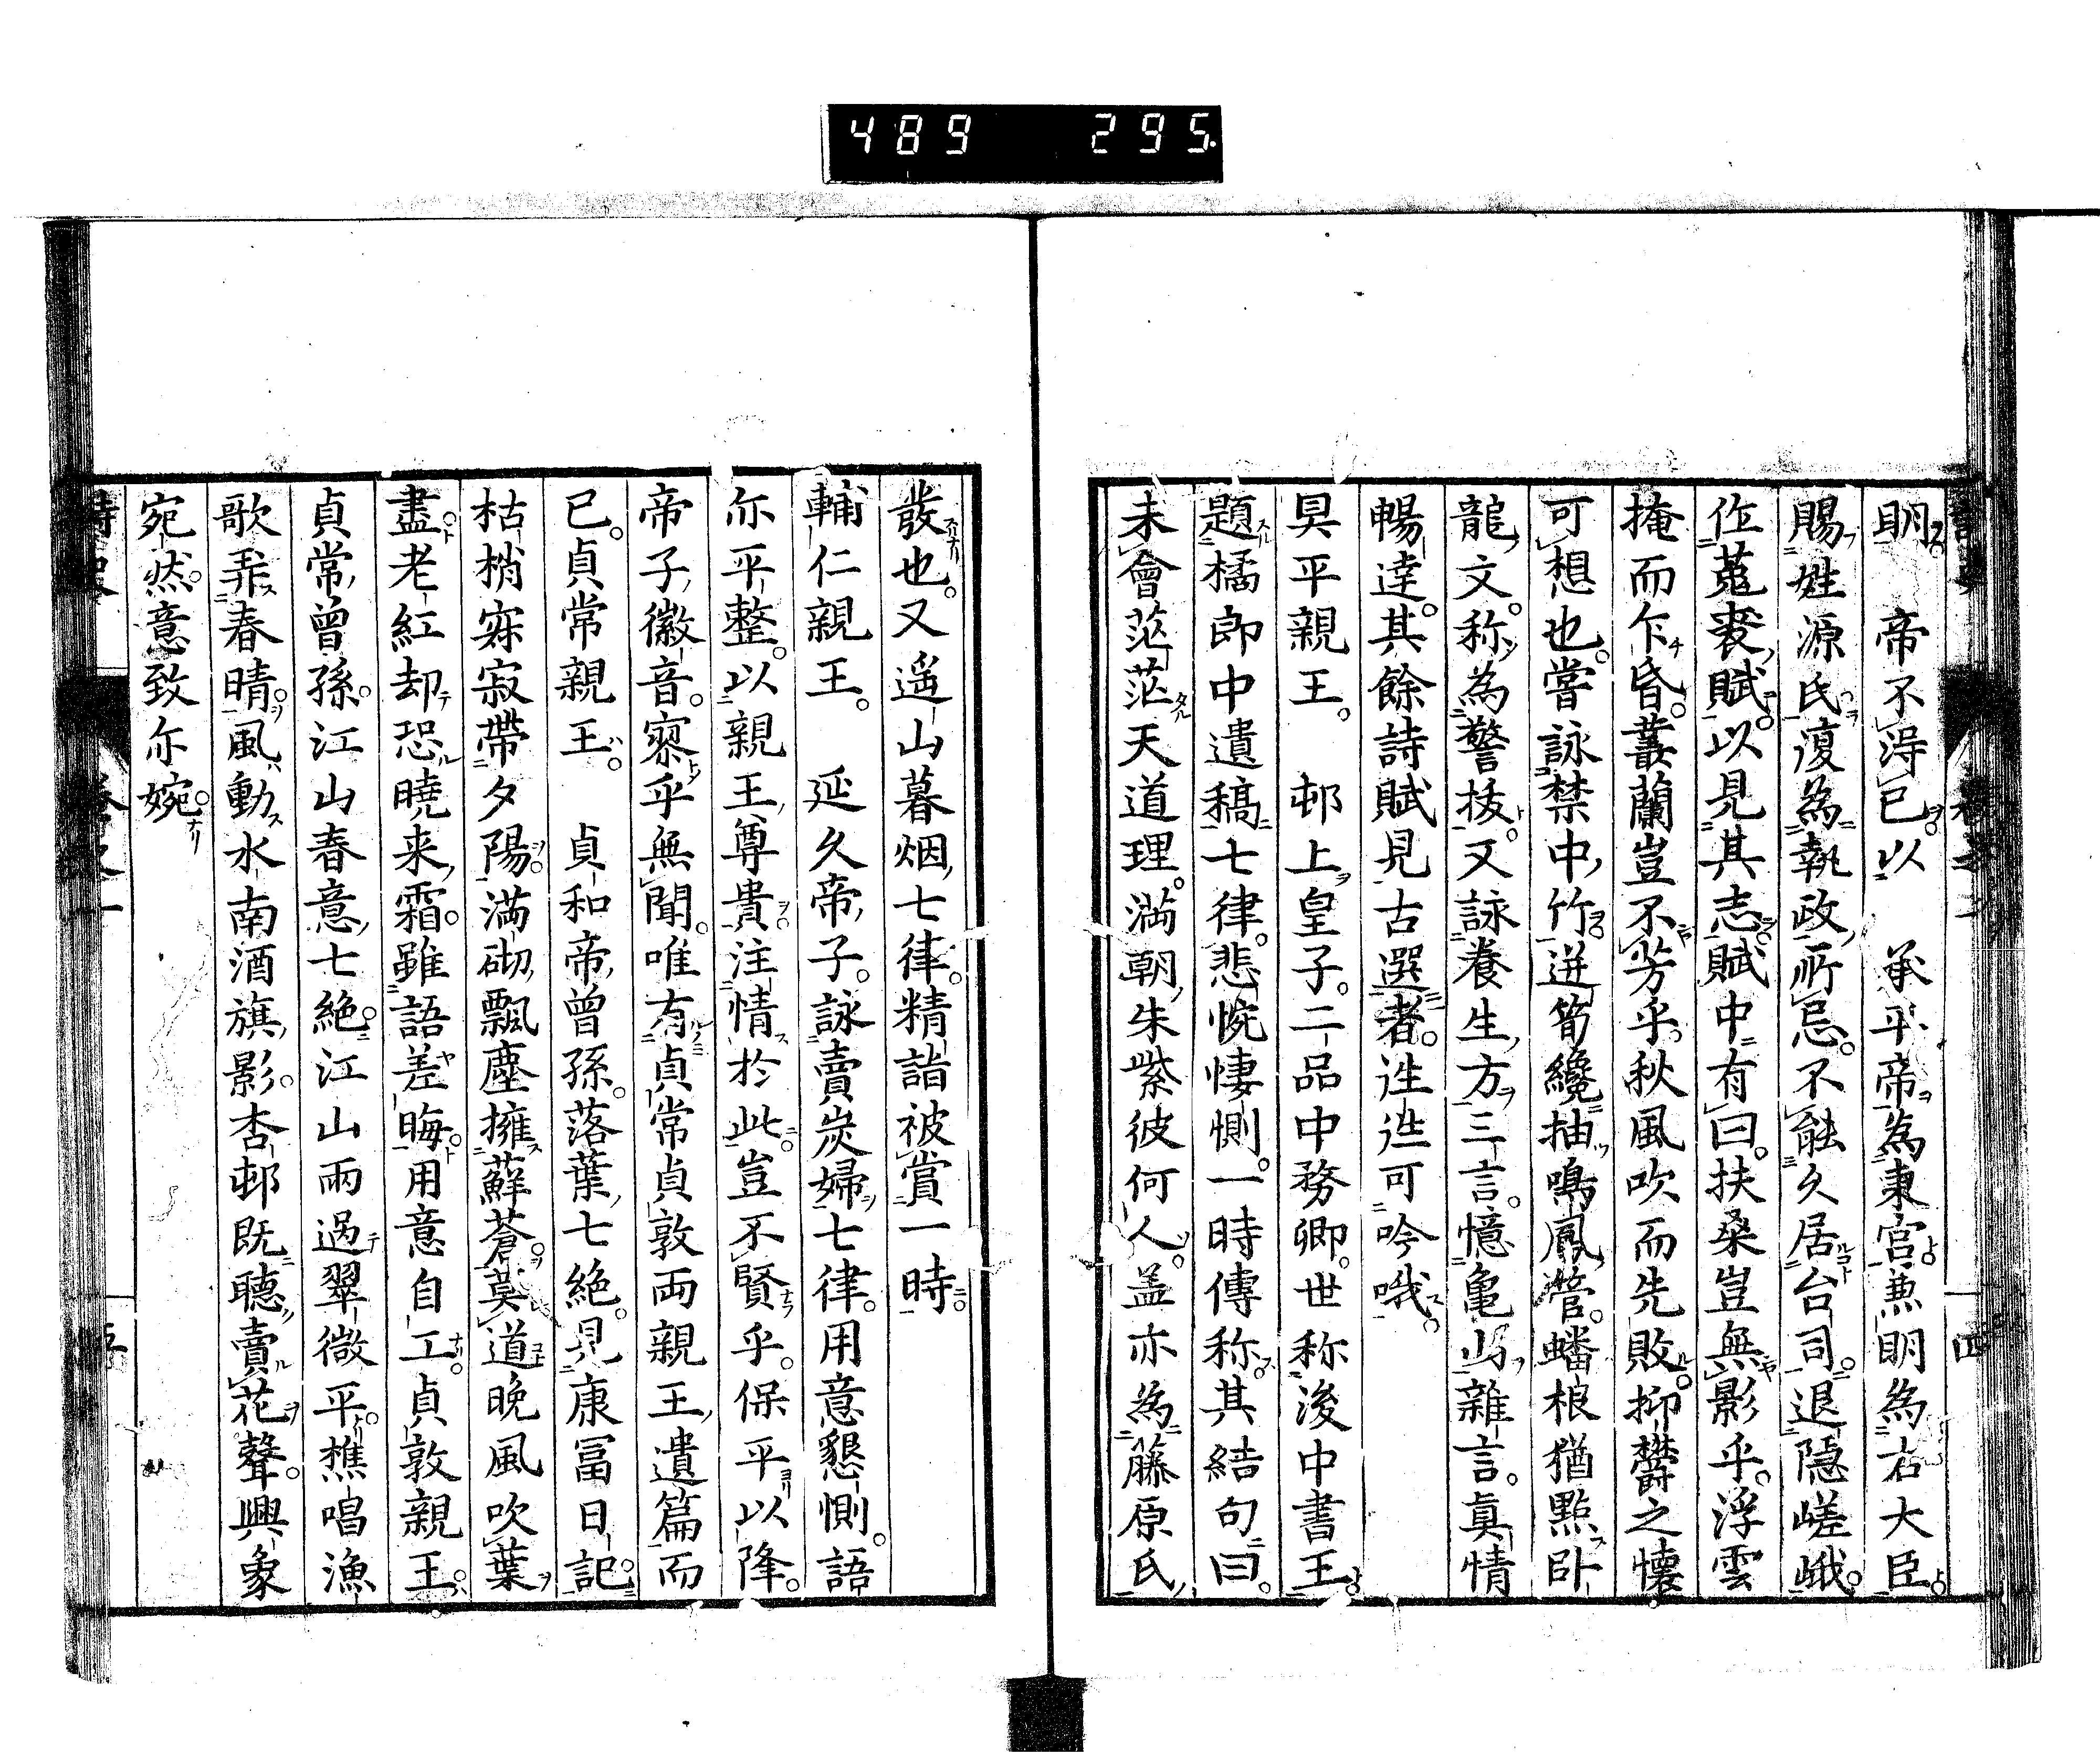 489 295
明帝不得已以 承平帝為東宮兼明為右大臣
賜姓源氏復為執政所忌不能久居台司退隱嵯峨
作菟裘賦以見其志賦中有曰扶桑豈無影乎浮雲
掩而乍昏叢蘭豈不芳乎秋風吹而先敗抑欝之懐
可想也嘗詠禁中竹迸筍纔抽鳴鳳管蟠根猶點卧
龍文称為警抜又詠養生方三言憶亀山雜言真情
暢達其餘詩賦見古選者迬迬可吟哦
具平親王 邨上皇子二品中務卿世称後中書王
題橘郎中遺稿七律悲惋悽惻一時傳称其結句曰
未會茫茫天道理満朝朱紫彼何人盖亦為藤原氏
發也又遥山暮烟七律精詣被賞一時
輔仁親王 延久帝子詠賣炭婦七律用意懇惻語
亦平整以親王尊貴注情於此豈不賢乎保平以降
帝子徽音寥乎無聞唯有貞常貞敦両親王遺篇而
已貞常親王 貞和帝曾孫落葉七絶見康冨日記
枯梢寂寂帶夕陽満砌飄塵擁蘚蒼莫道晩風吹葉
盡老紅却恐曉来霜雖語差晦用意自工貞敦親王
貞常曾孫江山春意七絶江山雨過翠微平樵唱漁
歌弄春晴風動水南酒旗影杏邨既聽賣花聲興象
宛然意致亦婉